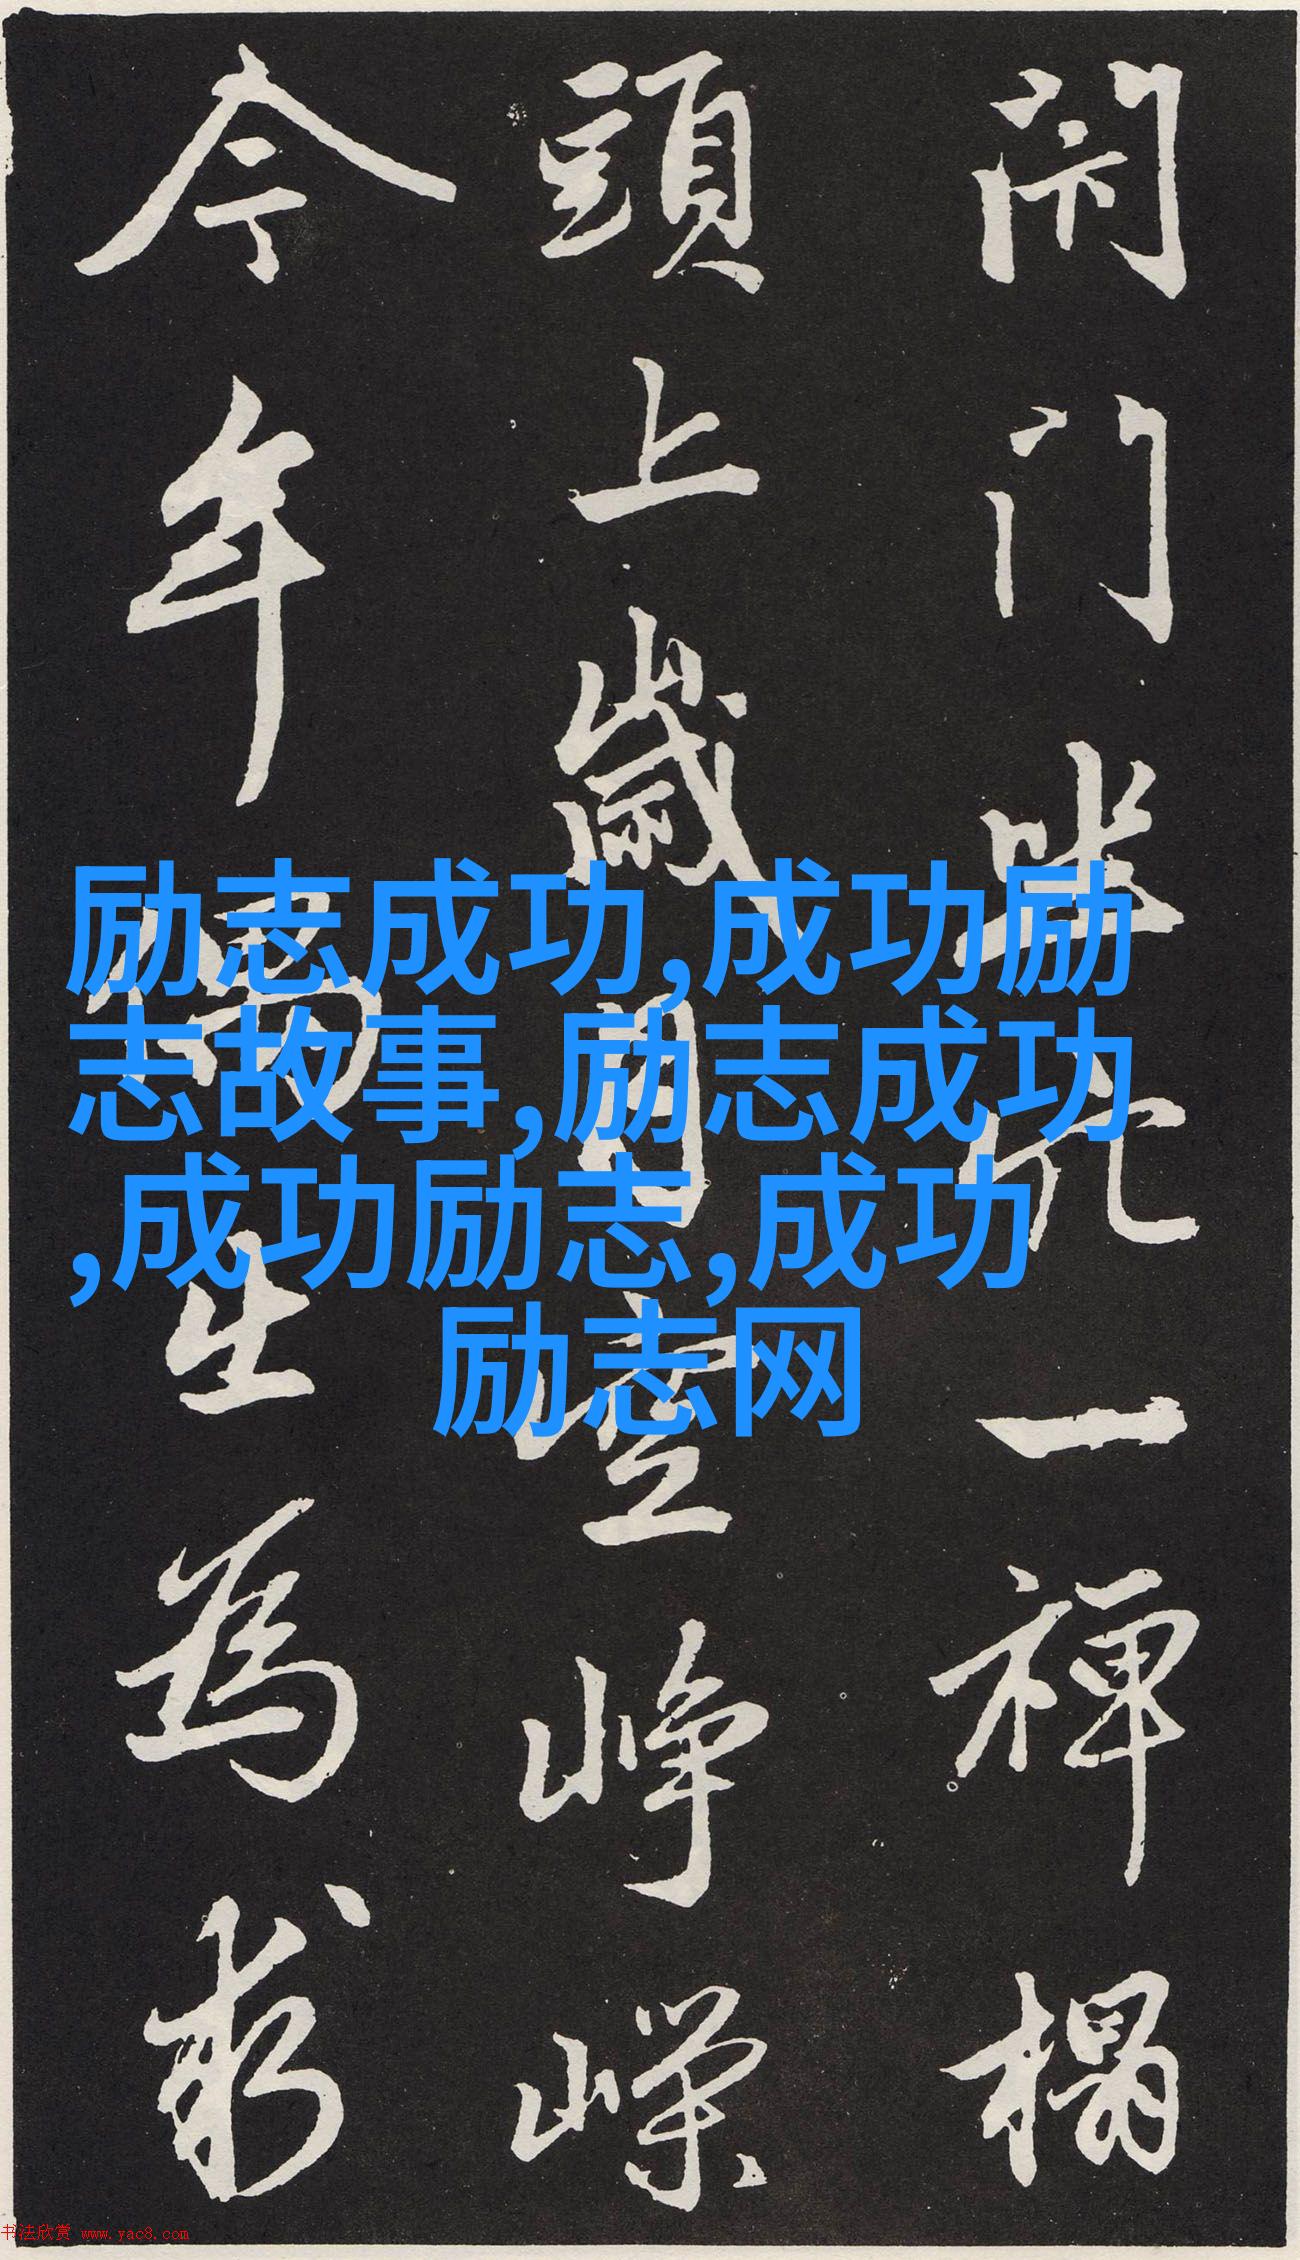 闭门坐穴一禅榻
頭上歲月空崢嶸
今年偶出為求
励志成功,成功励
志故事,励志成功
,成功励志,成功
励志网
书法欣赏 www.yac8.com